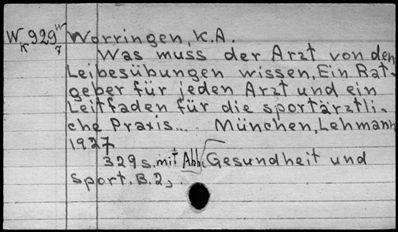 WK929W7 Worringen, K.A.
Was muss der Arzt von den
Leibesübungen wissen, Ein Rat-
geber für jeden Arzt und ein
Leitfaden für die sportärztli-
che Praxis... München, Lehmann
1927
329 s. mit Abb. Gesundheit und
sport. B.2,